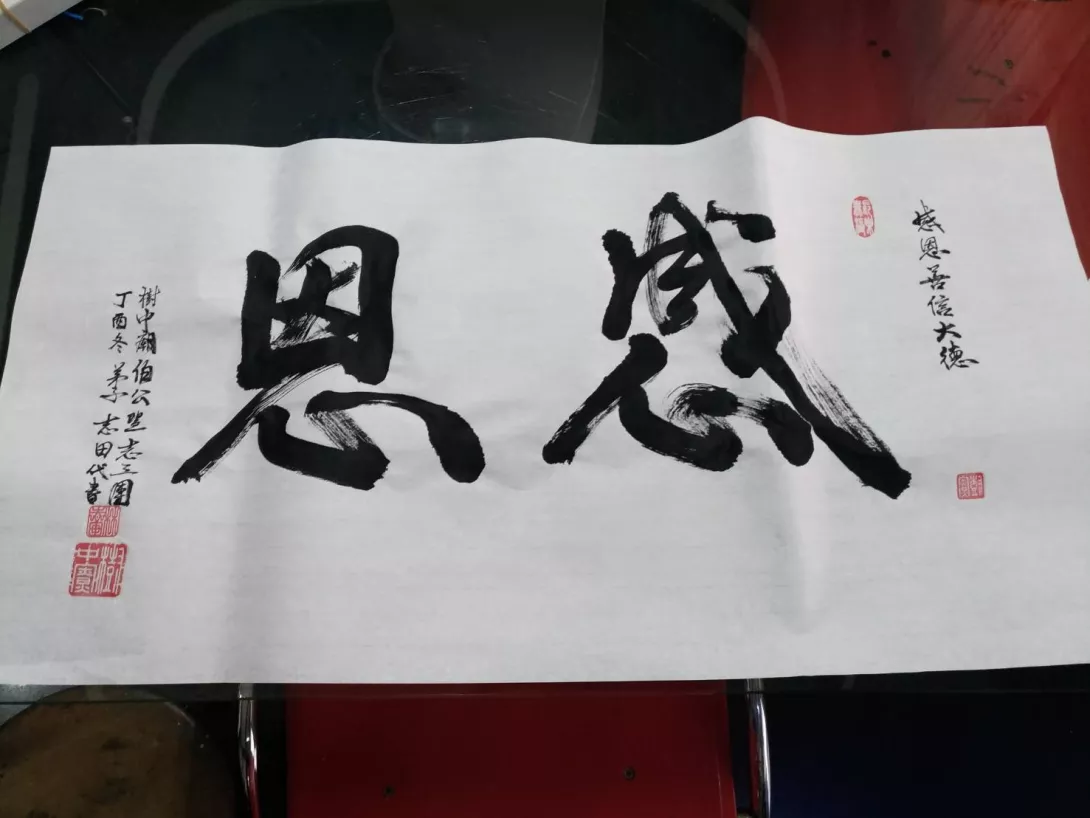 感恩善信大德
感恩
樹中廟伯公點志三圍
丁酉冬 弟子 志田代書